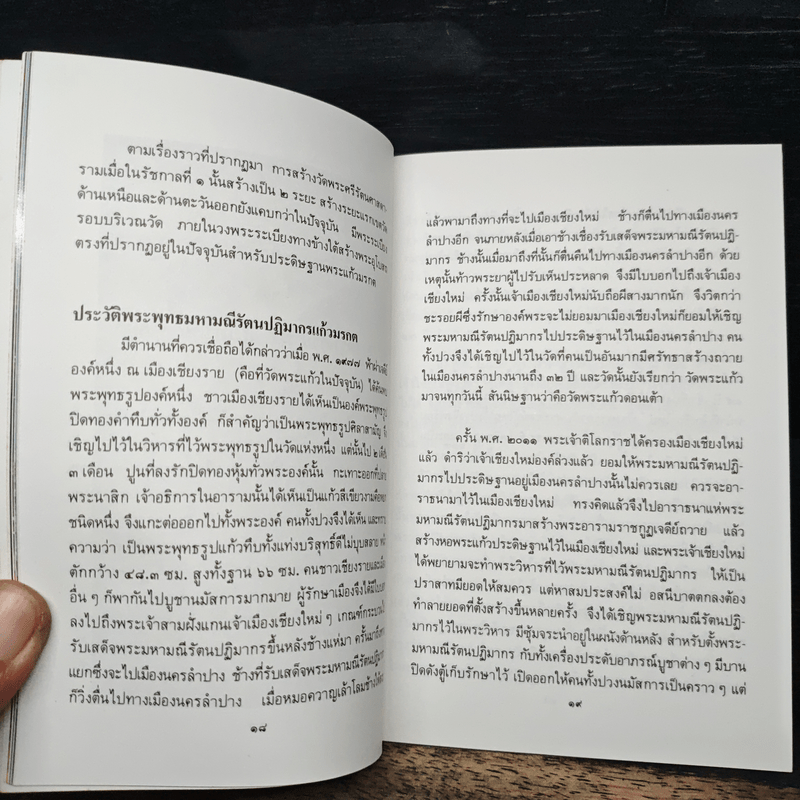 ตามเรื่องราวที่ปรากฏมา การสร้างวัดพระศรีรัตนศาสดา
รามเมื่อในรัชกาลที่ ๑ นั้นสร้างเป็น ๒ ระยะ สร้างระยะแรกเขตวัด
ด้านเหนือและด้านตะวันออกยังแคบกว่าในปัจจุบัน มีพระระเบียง
รอบบริเวณวัด ภายในวงพระระเบียงทางข้างใต้สร้างพระอุโบสถ
ตรงที่ปรากฏอยู่ในปัจจุบันสำหรับประดิษฐานพระแก้วมรกต
ประวัติพระพุทธมหามณีรัตนปฏิมากรแก้วมรกต
มีตำนานที่ควรเชื่อถือได้กล่าวว่าเมื่อ พ.ศ. ๑๙๗๗ ฟ้าผ่าเจดีย์
องค์หนึ่ง ณ เมืองเชียงราย (คือที่วัดพระแก้วในปัจจุบัน) ได้ค้นพบ
พระพุทธรูปองค์หนึ่ง ชาวเมืองเชียงรายได้เห็นเป็นองค์พระพุทธรูป
ปิดทองคำทึบทั่วทั้งองค์ ก็สำคัญว่าเป็นพระพุทธรูปศิลาสามัญ จึง
เชิญไปไว้ในวิหารที่ไว้พระพุทธรูปในวัดแห่งหนึ่ง แต่นั้นไป ๒ เดือน
๓ เดือน ปูนที่ลงรักปิดทองหุ้มทั่วพระองค์นั้น กะเทาะออกที่ปลาย
พระนาสิก เจ้าอธิการในอารามนั้นได้เห็นเป็นแก้วสีเขียวงาม
ชนิดหนึ่ง จึงแกะต่อออกไปทั้งพระองค์ คนทั้งปวงจึงได้เห็น และทราบ
ความว่า เป็นพระพุทธรูปแก้วทึบทั้งแท่งบริสุทธิ์ดีไม่บุบสลาย หน้า
ตักกว้าง ๔๘.๓ ซม. สูงทั้งฐาน ๖๖ ซม. คนชาวเชียงรายและเมือง
อื่น ๆ ก็พากันไปบูชานมัสการมากมาย ผู้รักษาเมืองจึงได้มีใบบอก
ลงไปถึงพระเจ้าสามฝั่งแกนเจ้าเมืองเชียงใหม่ ๆ เกณฑ์กระบวน
รับเสด็จพระมหามณีรัตนปฏิมากรขึ้นหลังช้างแห่มา ครั้นมาถึงทาง
แยกซึ่งจะไปเมืองนครลำปาง ช้างที่รับเสด็จพระมหามณีรัตนปฏิมากร
ก็วิ่งตื่นไปทางเมืองนครลำปาง เมื่อหมอควาญเล้าโลมช้าง
๑๘
แล้วพามาถึงทางที่จะไปเมืองเชียงใหม่ ช้างก็ตื่นไปทางเมืองนคร
ลำปางอีก จนภายหลังเมื่อเอาช้างเชื่องรับเสด็จพระมหามณีรัตนปฏิ-
มากร ช้างนั้นเมื่อมาถึงที่นั้นก็ตื่นคืนไปทางเมืองนครลำปางอีก ด้วย
เหตุนั้นท้าวพระยาผู้ไปรับเห็นประหลาด จึงมีใบบอกไปถึงเจ้าเมือง
เชียงใหม่ ครั้งนั้นเจ้าเมืองเชียงใหม่นับถือผีสางมากนัก จึงวิตกว่า
ชะรอยผีซึ่งรักษาองค์พระจะไม่ยอมมาเมืองเชียงใหม่ก็ยอมให้เชิญ
พระมหามณีรัตนปฏิมากรไปประดิษฐานไว้ในเมืองนครลำปาง คน
ทั้งปวงจึงได้เชิญไปไว้ในวัดที่คนเป็นอันมากมีศรัทธาสร้างถวาย
ในเมืองนครลำปางนานถึง ๓๒ ปี และวัดนั้นยังเรียกว่า วัดพระแก้ว
มาจนทุกวันนี้ สันนิษฐานว่าคือวัดพระแก้วดอนเต้า
ครั้น พ.ศ. ๒๐๑๑ พระเจ้าติโลกราชได้ครองเมืองเชียงใหม่
แล้ว ดำริว่าเจ้าเชียงใหม่องค์ล่วงแล้ว ยอมให้พระมหามณีรัตนปฏิ-
มากรไปประดิษฐานอยู่เมืองนครลำปางนั้นไม่ควรเลย ควรจะอา-
ราธนามาไว้ในเมืองเชียงใหม่ ทรงคิดแล้วจึงไปอาราธนาแห่พระ
มหามณีรัตนปฏิมากรมาสร้างพระอารามราชกูฏเจดีย์ถวาย แล้ว
สร้างหอพระแก้วประดิษฐานไว้ในเมืองเชียงใหม่ และพระเจ้าเชียงใหม่
ได้พยายามจะทำพระวิหารที่ไว้พระมหามณีรัตนปฏิมากร ให้เป็น
ปราสาทมียอดให้สมควร แต่หาสมประสงค์ไม่ อสนีบาตตกลงต้อง
ทำลายยอดที่ตั้งสร้างขึ้นหลายครั้ง จึงได้เชิญพระมหามณีรัตนปฏิ-
มากรไว้ในพระวิหาร มีซุ้มจระนำอยู่ในผนังด้านหลัง สำหรับตั้งพระ-
มหามณีรัตนปฏิมากร กับทั้งเครื่องประดับอาภรณ์บูชาต่าง ๆ มีบาน
ปิดดังตู้เก็บรักษาไว้ เปิดออกให้คนทั้งปวงนมัสการเป็นคราว ๆ แต่
๑๙